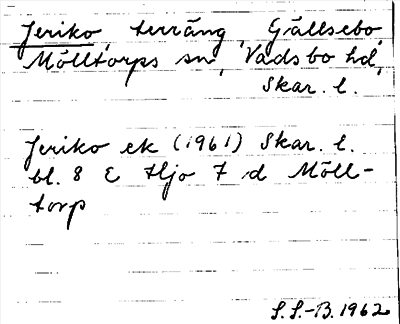 Jeriko, terräng, Gällsebo,
Mölltorps sn, Vadsbo hd,
Skar. l.
Jeriko ek (1961) Skar. l.
bl. 8 E Hjo 7 d Möll-
torp
S.S.-B. 1962